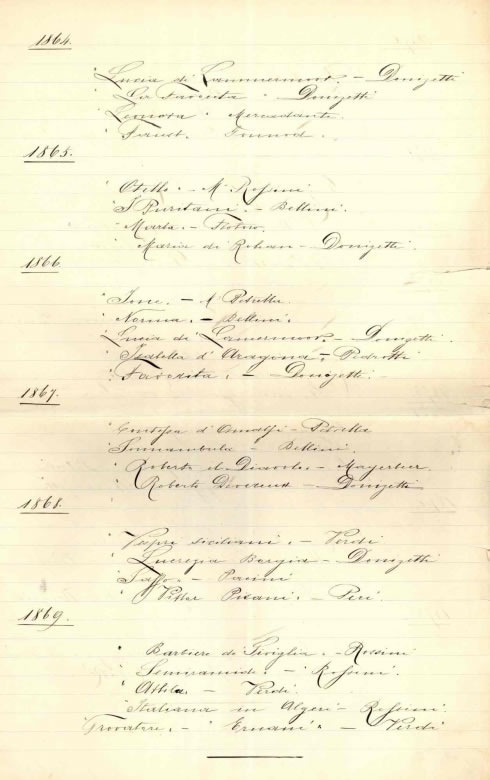 1864.
"Lucia di Lammermoor. - Donizetti
"La Favorita " Donizetti
"Leonora " Mercadante
"Faust. Gounod.
1865.
"Otello. - M Rossini
"I Puritani. - Bellini.
"Marta. - Flotow.
"Maria di Rohan - Donizetti.
1866.
"Ione. - M Petrella
"Norma. - Bellini.
"Lucia di Lamermoor. - Donizetti
"Isabella d'Aragona - Pedrotti
"Favorita. - Donizetti.
1867.
d'Amalfi - Petrella
"Sonnambula - Bellini.
"Roberto il Diavolo. - Mayerbier.
"Roberto Devereux - Donizetti
1868.
"Vespri siciliani. - Verdi
"Lucrezia Borgia - Donizetti
"Saffo. - Pacini
"Vittor Pisani. - Peri
1869.
"Barbiere di Siviglia. - Rossini
"Semiramide. - Rossini.
"Attila. - Verdi.
"Italiana in Algeri - Rossini.
"Trovatore. - "Ernani" - Verdi